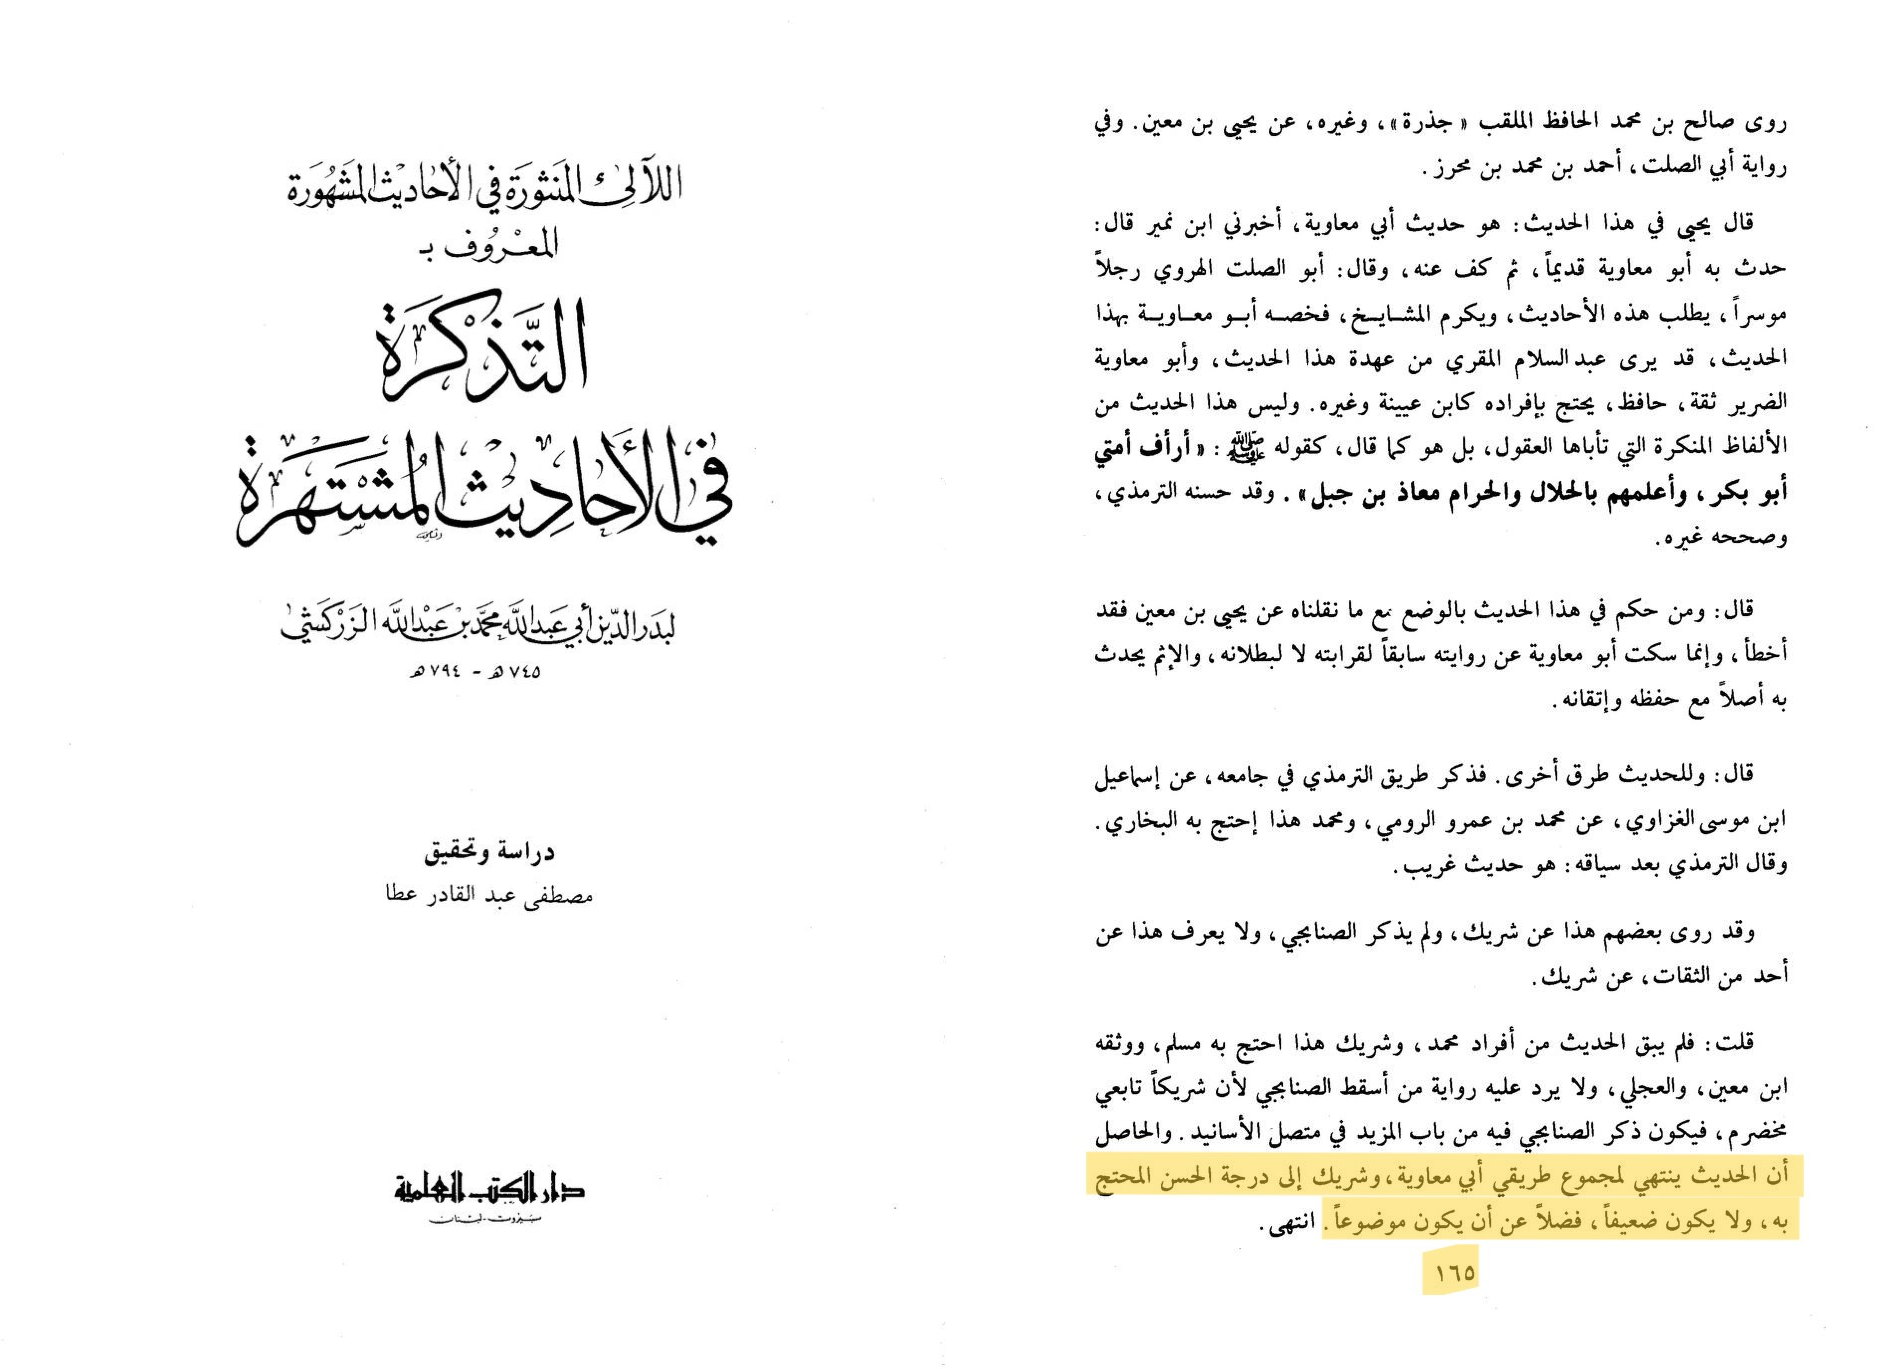 روى صالح بن محمد الحافظ الملقب « جذرة » ، وغيره ، عن يحيى بن معين . وفي
رواية أبي الصلت ، أحمد بن محمد بن محرز .
قال يحيى في هذا الحديث : هو حديث أبي معاوية ، أخبرني ابن نمير قال :
حدث به أبو معاوية قديماً ، ثم كف عنه ، وقال : أبو الصلت الهروي رجلاً
موسراً ، يطلب هذه الأحاديث ، ويكرم المشايخ ، فخصه أبو معاوية بهذا
الحديث ، قد يرى عبد السلام المقري من عهدة هذا الحديث ، وأبو معاوية
الضرير ثقة ، حافظ ، يحتج بإفراده كابن عيينة وغيره . وليس هذا الحديث من
الألفاظ المنكرة التي تأباها العقول ، بل هو كما قال ، كقوله ﷺ : « أرأف أمتي
أبو بكر ، وأعلمهم بالحلال والحرام معاذ بن جبل » . وقد حسنه الترمذي ،
وصححه غيره .
قال : ومن حكم في هذا الحديث بالوضع مع ما نقلناه عن يحيى بن معين فقد
أخطأ ، وإنما سكت أبو معاوية عن روايته سابقاً لقرابته لا لبطلانه ، والإثم يحدث
به أصلاً مع حفظه وإتقانه .
قال : وللحديث طرق أخرى . فذكر طريق الترمذي في جامعه ، عن إسماعيل
ابن موسى الغزاوي ، عن محمد بن عمرو الرومي ، ومحمد هذا إحتج به البخاري .
وقال الترمذي بعد سياقه : هو حديث غريب .
وقد روى بعضهم هذا عن شريك ، ولم يذكر الصنابجي ، ولا يعرف هذا عن
أحد من الثقات ، عن شريك .
قلت : فلم يبق الحديث من أفراد محمد ، وشريك هذا احتج به مسلم ، ووثقه
ابن معين ، والعجلي ، ولا يرد عليه رواية من أسقط الصنابجي لأن شريكاً تابعي
مخضرم ، فيكون ذكر الصنابجي فيه من باب المزيد في متصل الأسانيد . والحاصل
أن الحديث ينتهي لمجموع طريقي أبي معاوية ، وشريك إلى درجة الحسن المحتج
به ، ولا يكون ضعيفاً ، فضلاً عن أن يكون موضوعاً . انتهى .
١٦٥
اللآلئ المنثورة في الأحاديث المشهورة
المعروف بـ
التذكرة
في الأحاديث المشتهرة
لبدر الدين أبي عبد الله محمد بن عبد الله الزركشي
٧٤٥ هـ - ٧٩٤ هـ
دراسة وتحقيق
مصطفى عبد القادر عطا
دار الكتب العلمية
بيروت - لبنان